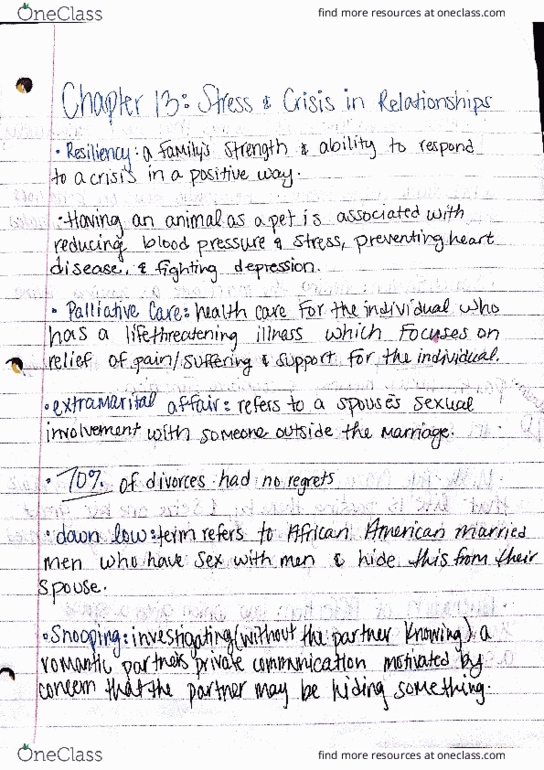 OneClass
find more resources at oneclass.com
Chapter 13: Stress & Crisis in Relationships
• Resiliency: a family's strength & ability to respond
to a crisis in a positive way.
• Having an animal as a pet is associated with
reducing blood pressure & stress, preventing heart
disease, & fighting depression.
• Palliative Care: health care for the individual who
has a lifethreatening illness which focuses on
relief of pain/suffering & support for the individual.
• extramarital affair: refers to a spouse's sexual
involvement with someone outside the marriage.
• 70% of divorces had no regrets
• down low: term refers to African American married
men who have sex with men & hide this from their
spouse.
• Snooping: investigating (without the partner knowing) a
romantic partners private communication motivated by
concern that the partner may be hiding something.
OneClass
find more resources at oneclass.com